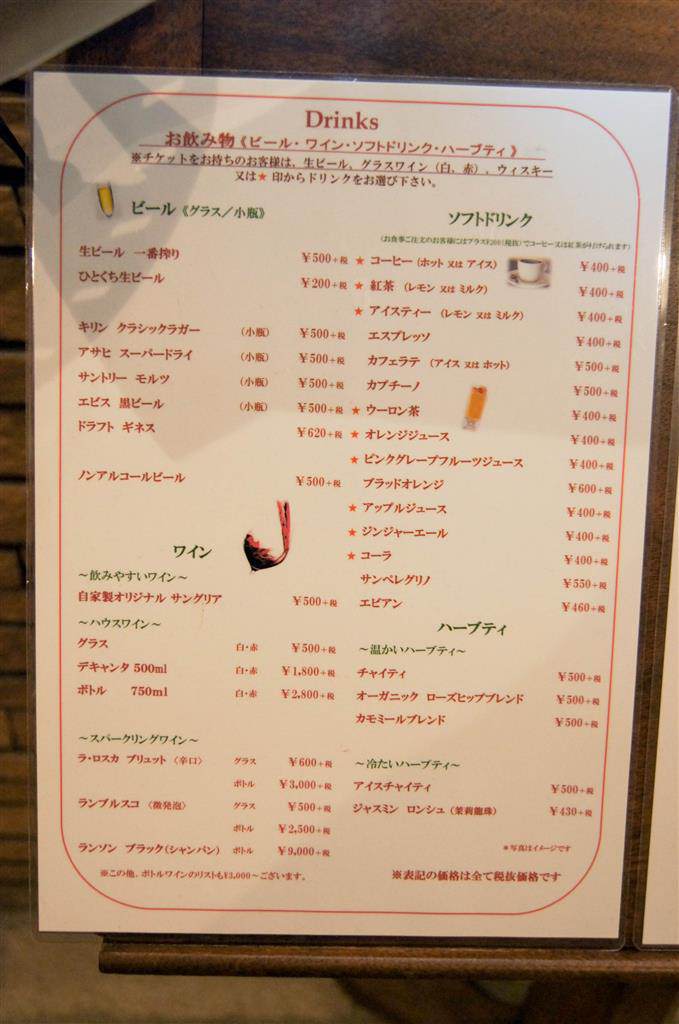 Drinks
お飲み物《ビール・ワイン・ソフトドリンク・ハーブティ》
※チケットをお持ちのお客様は、生ビール、グラスワイン（白、赤）、ウィスキー
又は★印からドリンクをお選び下さい。
ビール《グラス／小瓶》
生ビール 一番搾り ¥500+税
ひとくち生ビール ¥200+税
キリン クラシックラガー （小瓶） ¥500+税
アサヒ スーパードライ （小瓶） ¥500+税
サントリー モルツ （小瓶） ¥500+税
エビス 黒ビール （小瓶） ¥500+税
ドラフト ギネス ¥620+税
ノンアルコールビール ¥500+税
ワイン
～飲みやすいワイン～
自家製オリジナル サングリア ¥500+税
～ハウスワイン～
グラス 白・赤 ¥500+税
デキャンタ 500ml 白・赤 ¥1,800+税
ボトル 750ml 白・赤 ¥2,800+税
～スパークリングワイン～
ラ・ロスカ ブリュット〈辛口〉 グラス ¥600+税
ボトル ¥3,000+税
ランブルスコ〈微発泡〉 グラス ¥500+税
ボトル ¥2,500+税
ランソン ブラック(シャンパン) ボトル ¥9,000+税
※この他、ボトルワインのリストも¥3,000～ございます。
ソフトドリンク
（お食事ご注文のお客様にはプラス¥200（税抜）でコーヒー又は紅茶が付けられます）
★ コーヒー（ホット 又は アイス） ¥400+税
★ 紅茶 （レモン 又は ミルク） ¥400+税
★ アイスティー （レモン 又は ミルク） ¥400+税
エスプレッソ ¥400+税
カフェラテ （アイス 又は ホット） ¥500+税
カプチーノ ¥500+税
★ ウーロン茶 ¥400+税
★ オレンジジュース ¥400+税
★ ピンクグレープフルーツジュース ¥400+税
ブラッドオレンジ ¥600+税
★ アップルジュース ¥400+税
★ ジンジャーエール ¥400+税
★ コーラ ¥400+税
サンペレグリノ ¥550+税
エビアン ¥460+税
ハーブティ
～温かいハーブティ～
チャイティ ¥500+税
オーガニック ローズヒップブレンド ¥500+税
カモミールブレンド ¥500+税
～冷たいハーブティ～
アイスチャイティ ¥500+税
ジャスミン ロンシュ（茉莉龍珠） ¥430+税
＊写真はイメージです
※表記の価格は全て税抜価格です